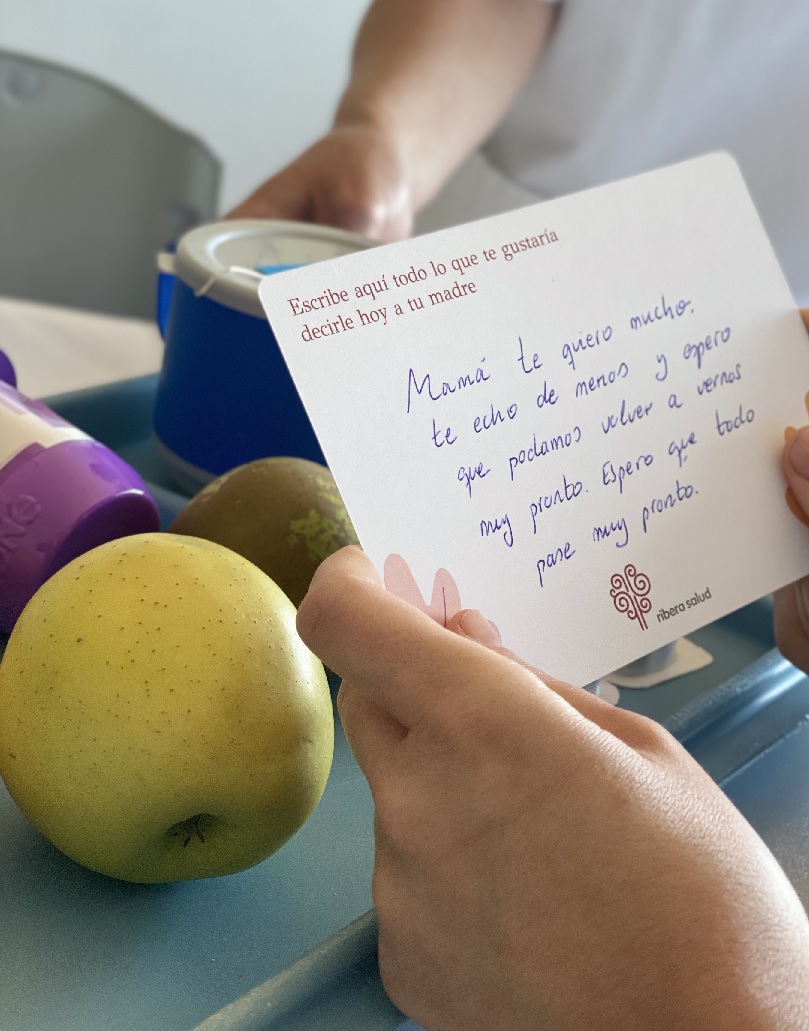 Escribe aquí todo lo que te gustaría
decirle hoy a tu madre
Mamá te quiero mucho,
te echo de menos y espero
que podamos volver a vernos
muy pronto. Espero que todo
pase muy pronto.
ribera salud